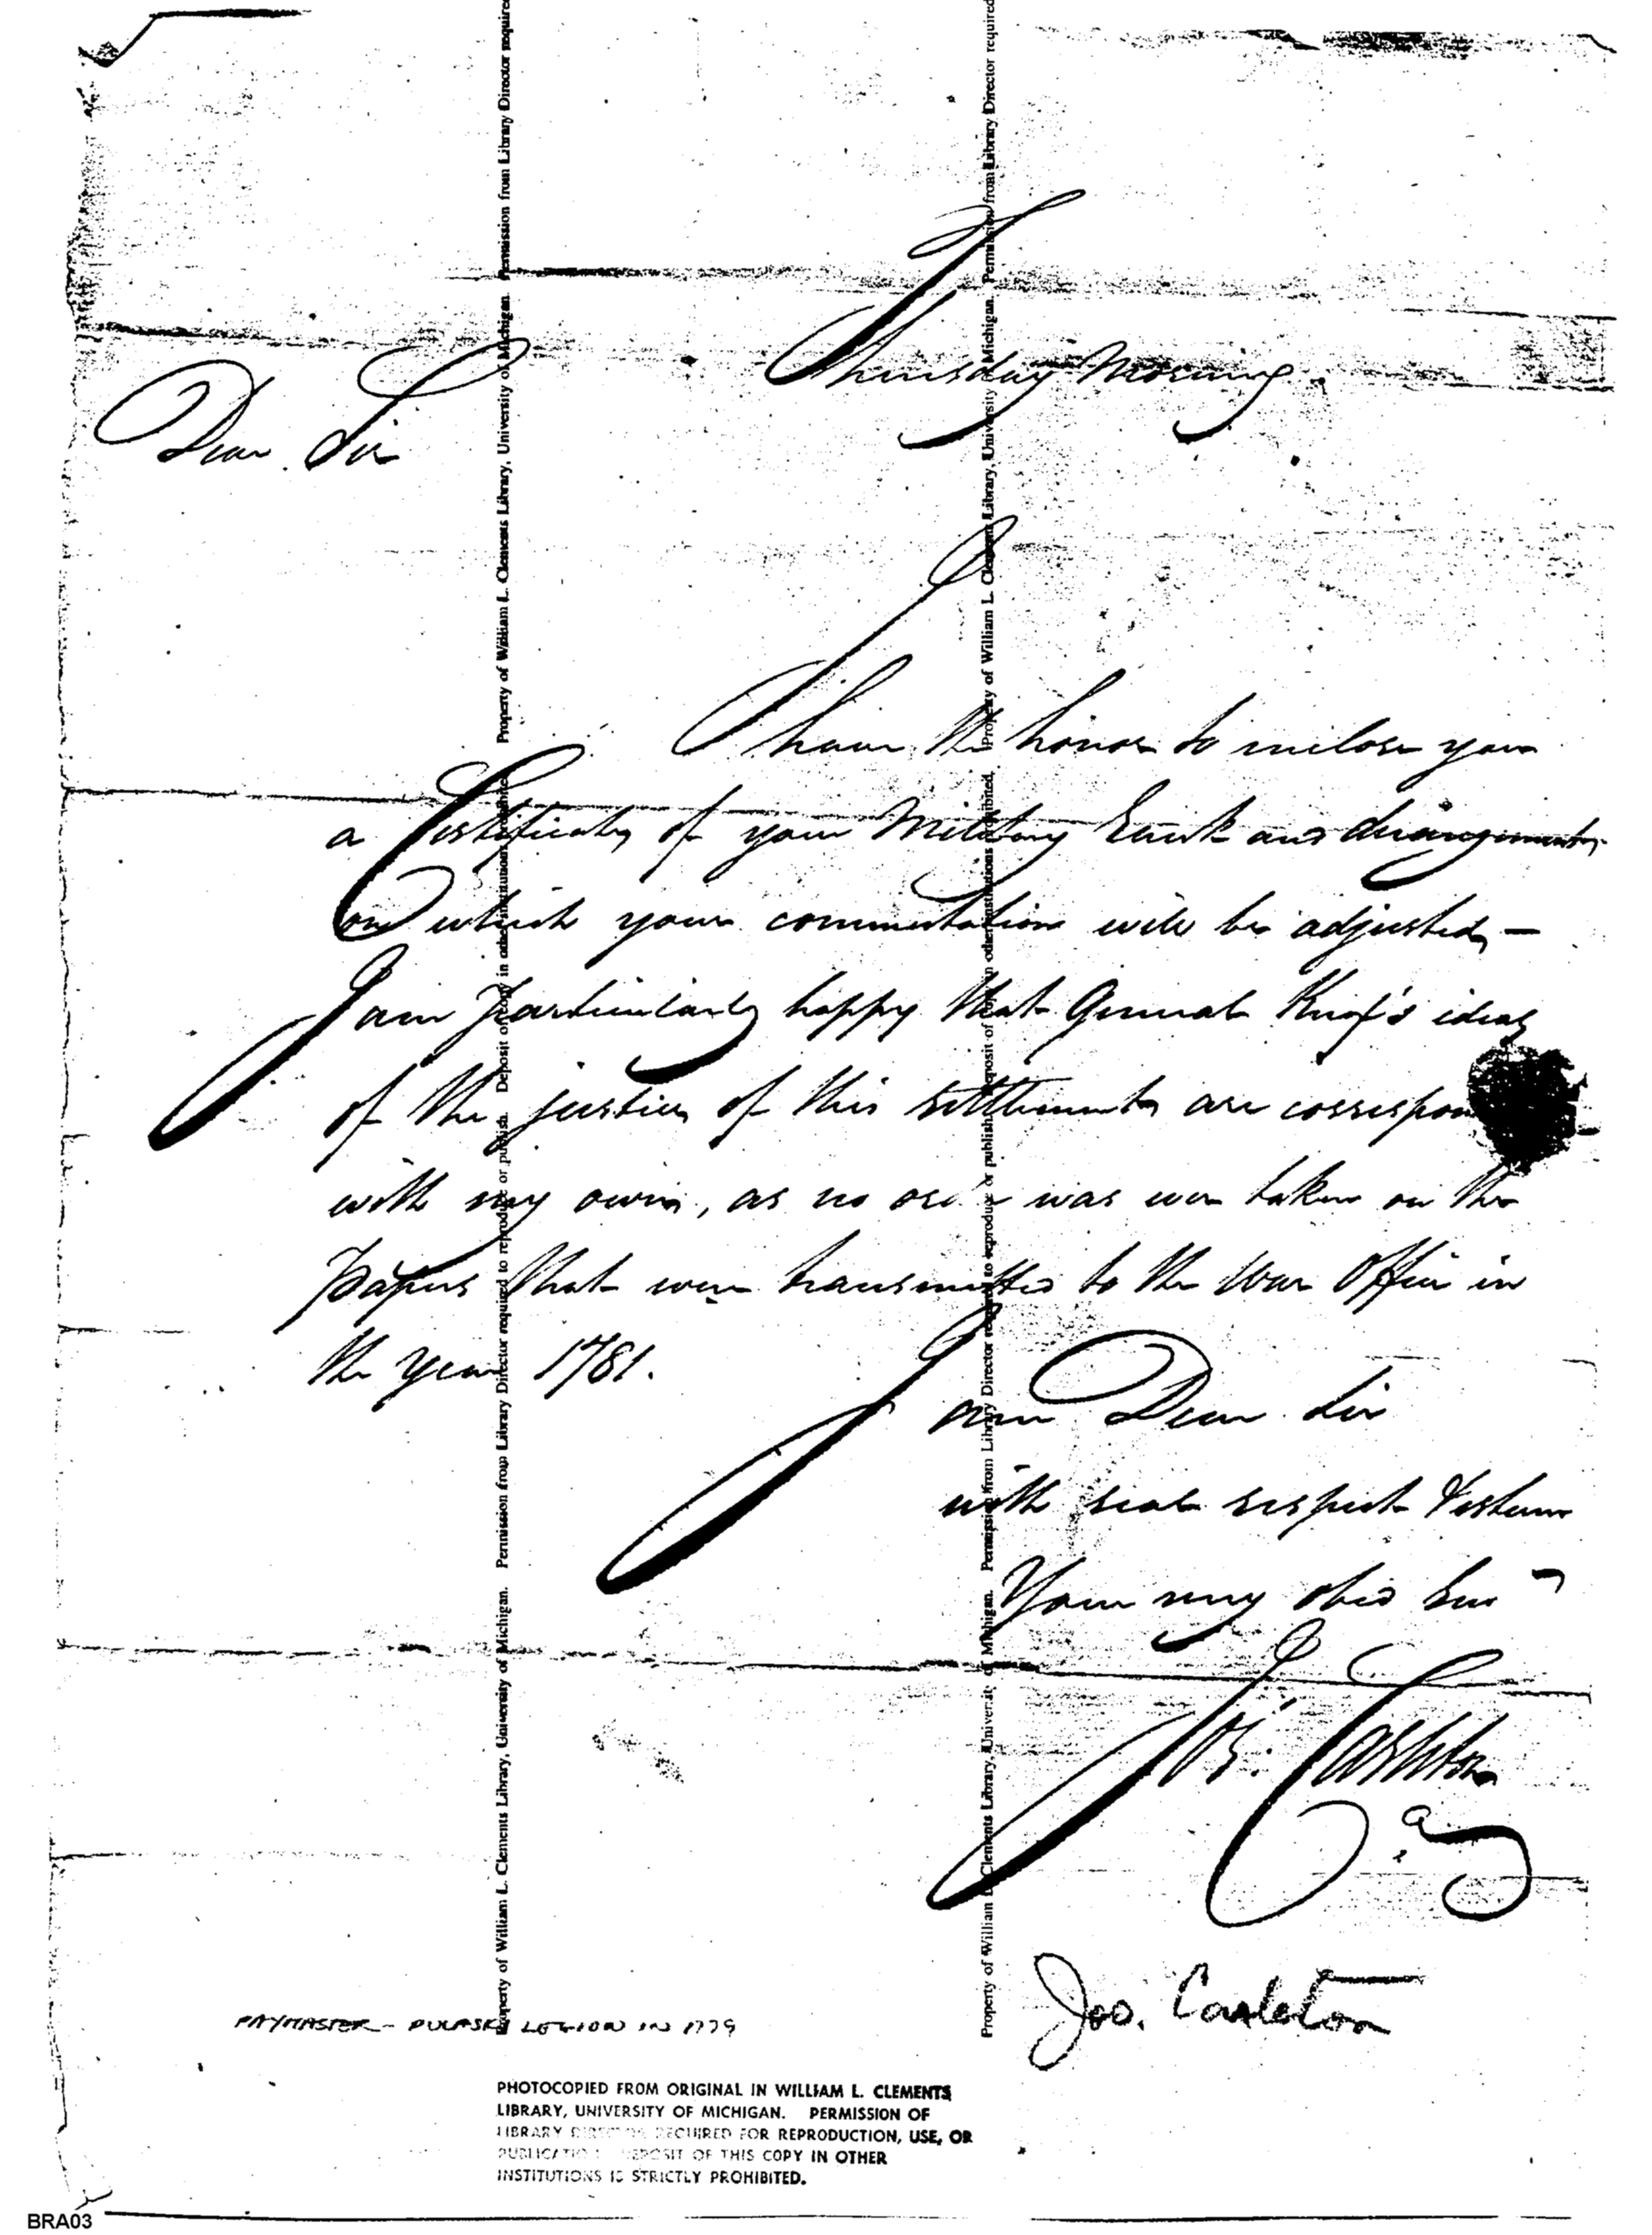 Thursday Morning
Dear Sir
I have the honor to inclose you
a Certificate, of your Military Rank and derangement,
on which your commutation will be adjusted, —
I am particularly happy that General Knox's ideas
of the justice of this settlement, are correspon
with my own, as no order was ever taken on the
papers that were transmitted to the War Office in
the year 1781.
I am Dear Sir
with real respect & esteem
Your very obed Serv
Jos: Carleton
Jos. Carleton
PAYMASTER - PULASKI LEGION IN 1779
PHOTOCOPIED FROM ORIGINAL IN WILLIAM L. CLEMENTS
LIBRARY, UNIVERSITY OF MICHIGAN. PERMISSION OF
LIBRARY DIRECTOR REQUIRED FOR REPRODUCTION, USE, OR
PUBLICATION. DEPOSIT OF THIS COPY IN OTHER
INSTITUTIONS IS STRICTLY PROHIBITED.
BRA03
Property of William L. Clements Library, University of Michigan. Permission from Library Director required to reproduce or publish. Deposit of copy in other institutions prohibited.
Property of William L. Clements Library, University of Michigan. Permission from Library Director required
Property of William L. Clements Library, University of Michigan. Permission from Library Director required to reproduce or publish. Deposit of copy in other institutions prohibited.
Property of William L. Clements Library, University of Michigan. Permission from Library Director required